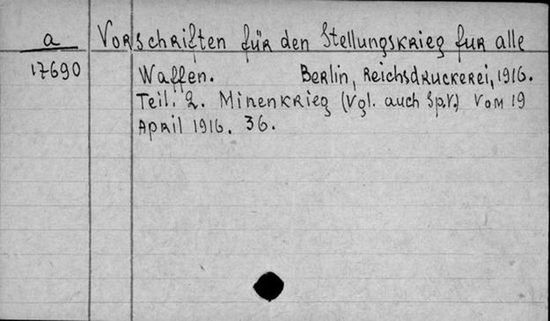 a Vorschriften für den Stellungskrieg fur alle
17690 Waffen. Berlin, Reichsdruckerei, 1916.
Teil. 2. Minenkrieg (Vgl. auch Sp.V.) vom 19
April 1916. 36.